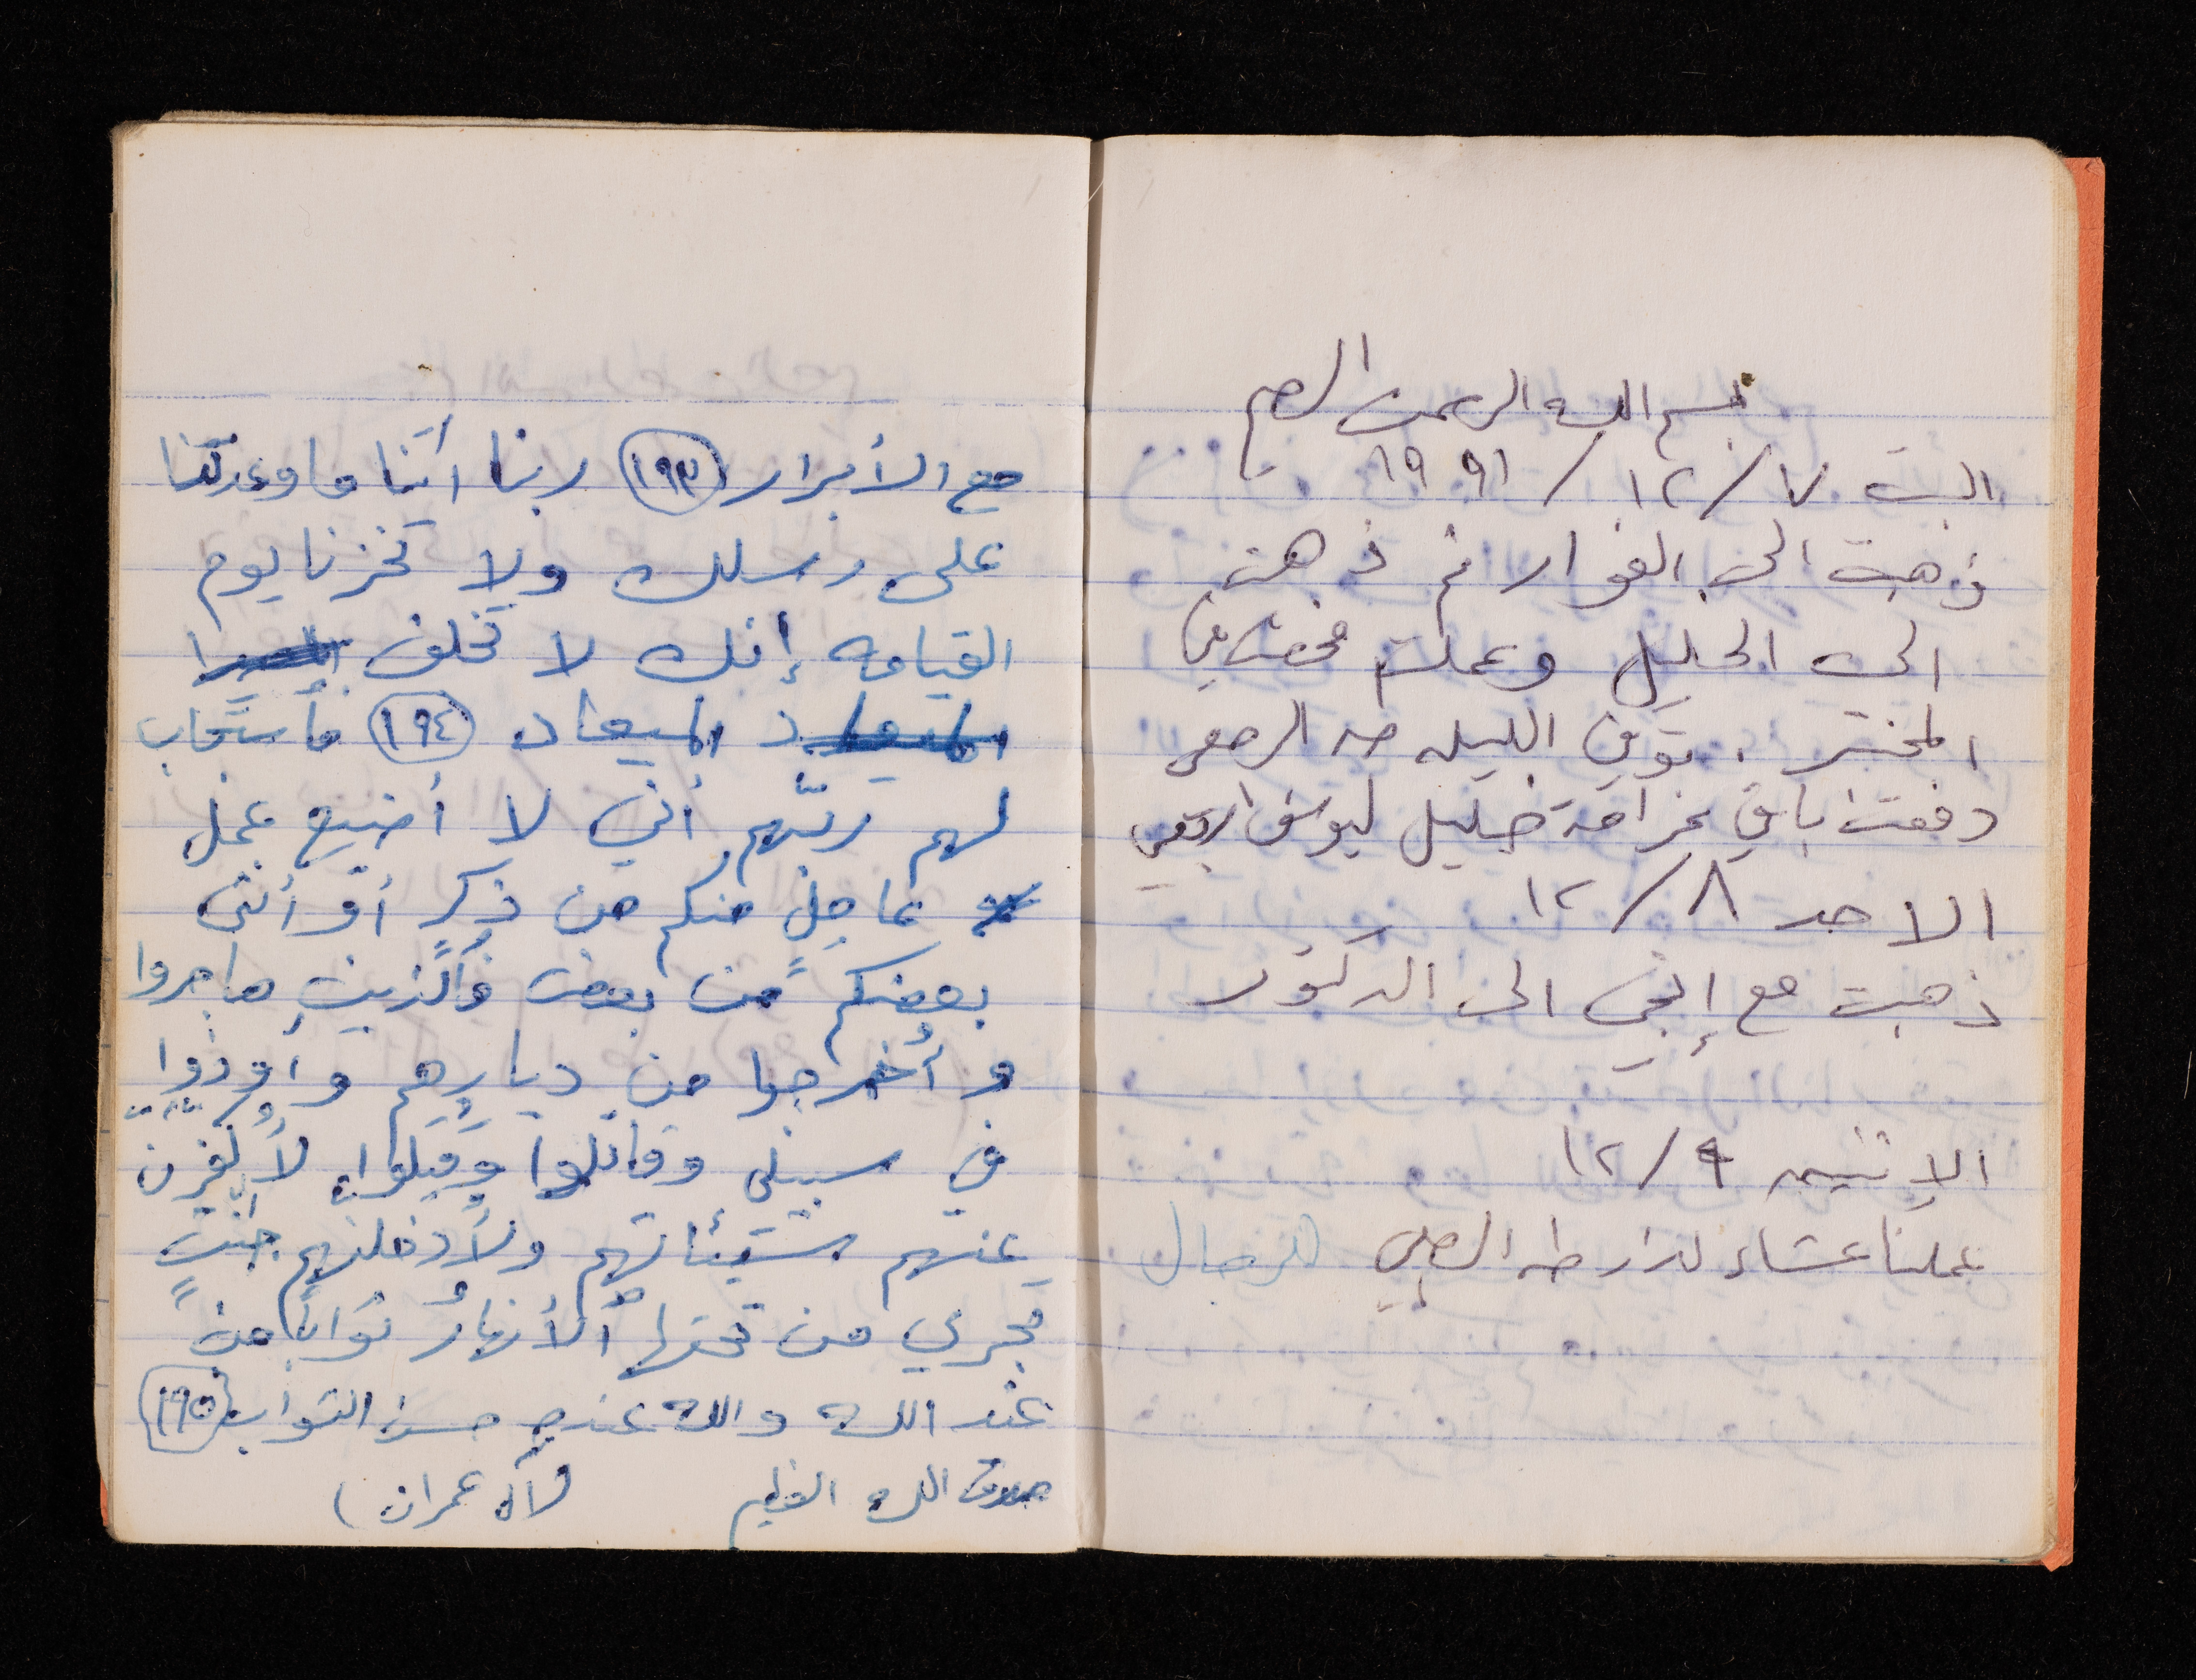 بسم الله الرحمن الرحيم
السبت ٧/١٢/١٩٩١
ذهبت الى الفوار ثم ذهبت
الى الخليل وعملت فحص في
المختبر. توفي الليله
دفعت باقي غرامة خليل ليوسف
الاحد ٨/١٢
ذهبت مع إبني الى الدكتور
الاثنين ٩/١٢
عملنا عشاء لدار طه للرجال
مع الأبرار (١٩٣) ربنا اتنا ما وعدتنا
على رسلك ولا تخزنا يوم
القيامه إنك لا تخلف
الميعاد (١٩٤) فأستجاب
لهم ربّهم أني لا أضيع عمل
عاملٍ منكم من ذكرٍ أو أنثى
بعضكم من بعض فألّذين هاجروا
وأُخرجوا من ديارِهم واوذوا
في سبيلي وقاتلوا وقُتلوا لأكفرن
عنهم سيّئاتهم ولأدخلنهم جنّتٍ
تجري من تحتها ألأنهارُ ثواباً من
عند الله والله عنده حسن الثواب (١٩٥)
صدق الله العظيم (آل عمران)